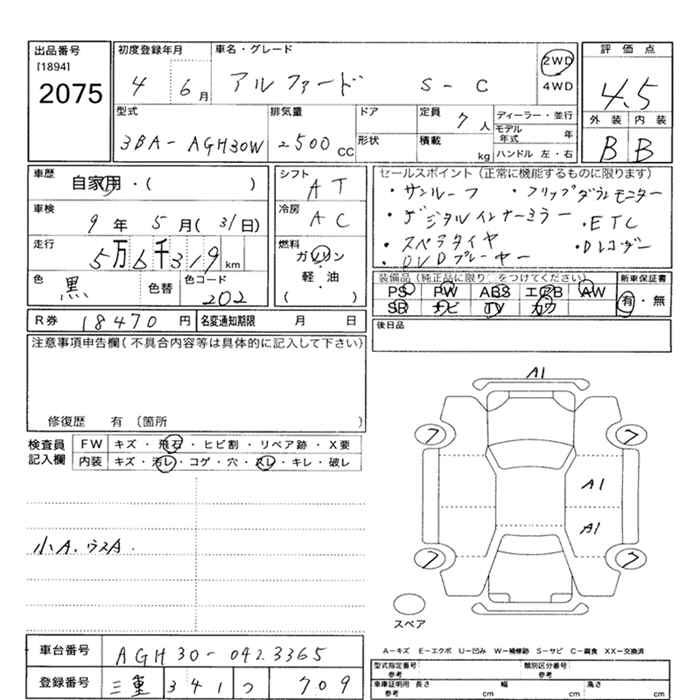 出品番号
[1894]
2075
初度登録年月
4 6月
車名・グレード
アルファード S-C
2WD
4WD
評価点
4.5
外装 内装
B B
型式
3BA-AGH30W
排気量
2500 CC
ドア
形状
定員
7人
積載
kg
ディーラー・並行
モデル年式 年
ハンドル 左・右
車歴
自家用・( )
車検
9年 5月 (31日)
走行
5万6千319km
色
黒
色替
色コード
202
シフト
AT
冷房
AC
燃料
ガソリン
軽・油
( )
セールスポイント(正常に機能するものに限ります)
・サンルーフ ・フリップダウンモニター
・デジタルインナーミラー ・ETC
・スペアタイヤ ・Dレコーダー
・DVDプレーヤー
装備品(純正品に限り○をつけてください)
PS PW ABS エアB AW
SR ナビ TV カワ
新車保証書
有・無
R券 18470円
名変通知期限 月 日
後日品
注意事項申告欄(不具合内容等は具体的に記入して下さい)
修復歴 有 〔箇所 〕
検査員
記入欄
FW キズ・飛石・ヒビ割・リペア跡・X要
内装 キズ・汚レ・コゲ・穴・スレ・キレ・破レ
小A.ウスA.
A1
7 7
A1
A1
7 7
スペア
車台番号
AGH30-0423365
登録番号
三重 341 つ 709
A-キズ E-エクボ U-凹み W-補修跡 S-サビ C-腐食 XX-交換済
型式指定番号
参考
類別区分番号
参考
車庫証明用
参考
長さ cm 幅 cm 高さ cm